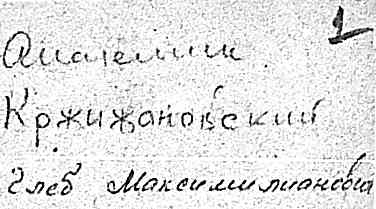 1
Академик
Кржижановский
Глеб Максимилианович